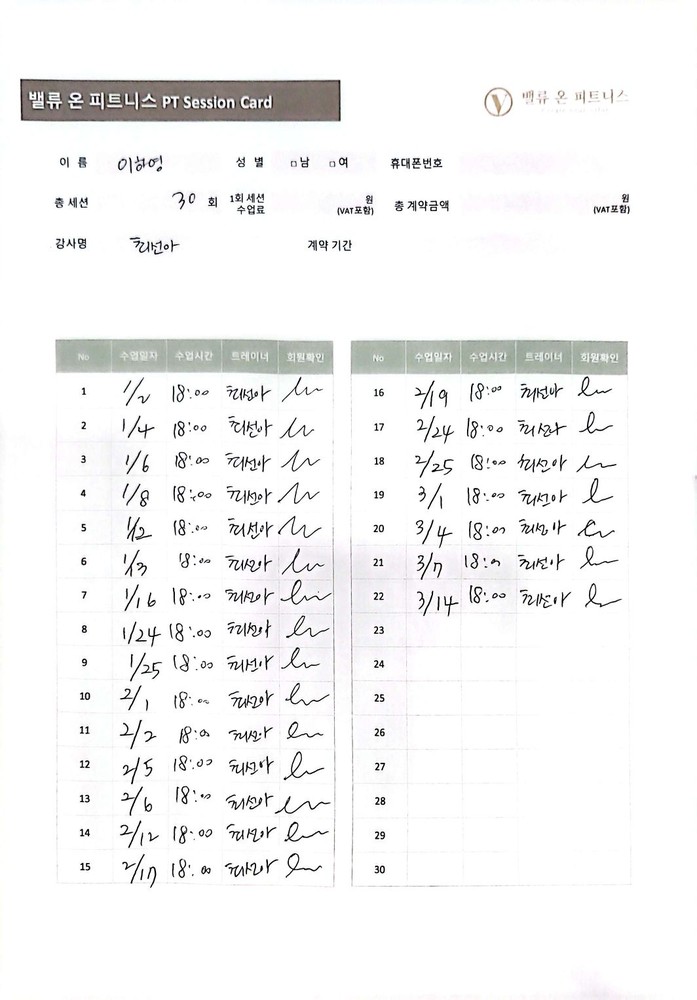 밸류 온 피트니스 PT Session Card
밸류 온 피트니스
이 름 이하영 성 별 □남 □여 휴대폰번호
총 세션 30 회 1회 세션 수업료 원 (VAT포함) 총 계약금액 원 (VAT포함)
강사명 최선아 계약 기간
No 수업일자 수업시간 트레이너 회원확인
1 1/2 18:00 최선아
2 1/4 18:00 최선아
3 1/6 18:00 최선아
4 1/8 18:00 최선아
5 1/12 18:00 최선아
6 1/13 18:00 최선아
7 1/16 18:00 최선아
8 1/24 18:00 최선아
9 1/25 18:00 최선아
10 2/1 18:00 최선아
11 2/2 18:00 최선아
12 2/5 18:00 최선아
13 2/6 18:00 최선아
14 2/12 18:00 최선아
15 2/17 18:00 최선아
No 수업일자 수업시간 트레이너 회원확인
16 2/19 18:00 최선아
17 2/24 18:00 최선아
18 2/25 18:00 최선아
19 3/1 18:00 최선아
20 3/4 18:00 최선아
21 3/7 18:00 최선아
22 3/14 18:00 최선아
23
24
25
26
27
28
29
30